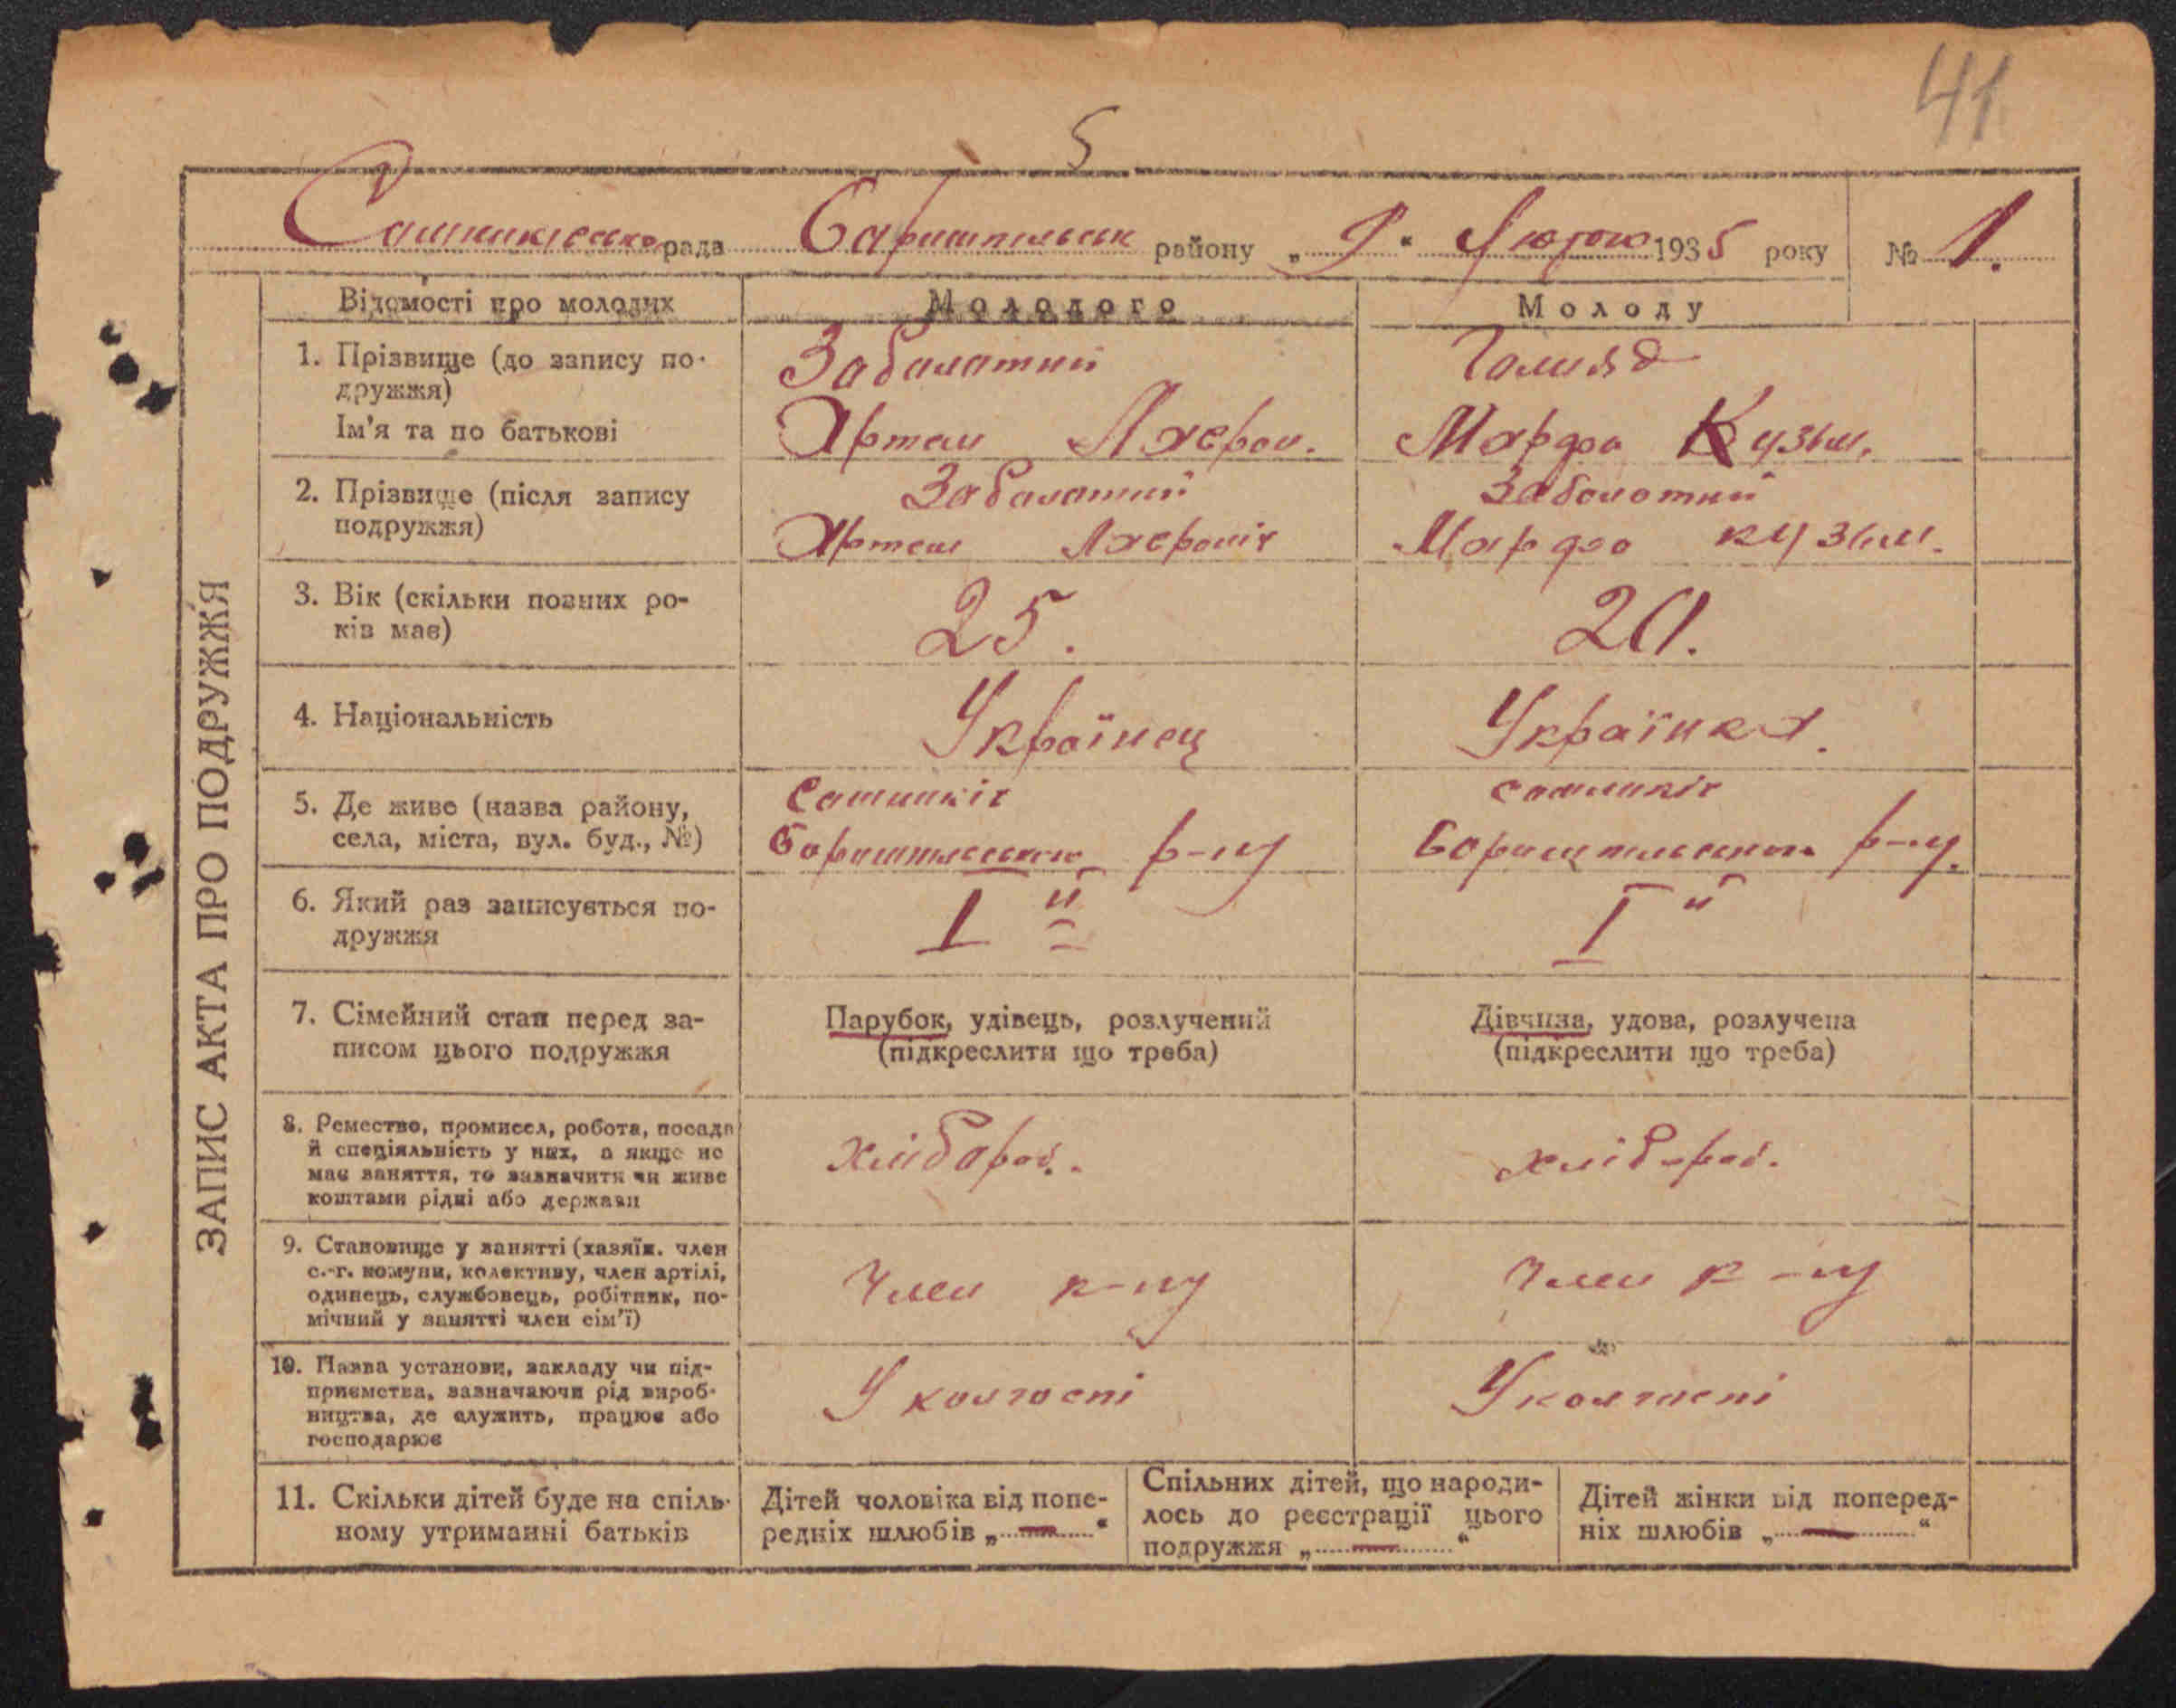 41
5
Сошниківська рада Баришпільськ району „ 9 “ Лютого 1935 року № 1.
Відомості про молодих Молодого Молоду
1. Прізвище (до запису по-
дружжя)
Забалатний
Ім'я та по батькові
Артем Марфа Кузьм.
2. Прізвище (після запису
подружжя)
Забалатний Заболотний
Артем Марфа Кузьм.
3. Вік (скільки повних ро-
ків має)
25. 20.
4. Національність Українец Українка.
5. Де живе (назва району,
села, міста, вул. буд., №)
Сошників Сошників
р-ну р-ну.
6. Який раз записується по-
дружжя
I й I й
7. Сімейний стан перед за-
писом цього подружжя
Парубок, удівець, розлучений
(підкреслити що треба)
Дівчина, удова, розлучена
(підкреслити що треба)
8. Ремество, промисел, робота, посада
й спеціяльність у них, а якщо не
має заняття, то зазначити чи живе
коштами рідні або держави
хлібороб. хлібороб.
9. Становище у занятті (хазяїн, член
с.-г. комуни, колективу, член артілі,
одинець, службовець, робітник, по-
мічний у занятті член сім'ї)
Член к-пу Член к-пу
10. Назва установи, закладу чи під-
приємства, зазначаючи рід вироб-
ництва, де служить, працює або
господарює
У колгоспі У колгоспі
11. Скільки дітей буде на спіль-
ному утриманні батьків
Дітей чоловіка від попе-
редніх шлюбів „ — “
Спільних дітей, що народи-
лось до реєстрації цього
подружжя „ — “
Дітей жінки від поперед-
ніх шлюбів „ — “
ЗАПИС АКТА ПРО ПОДРУЖЖЯ